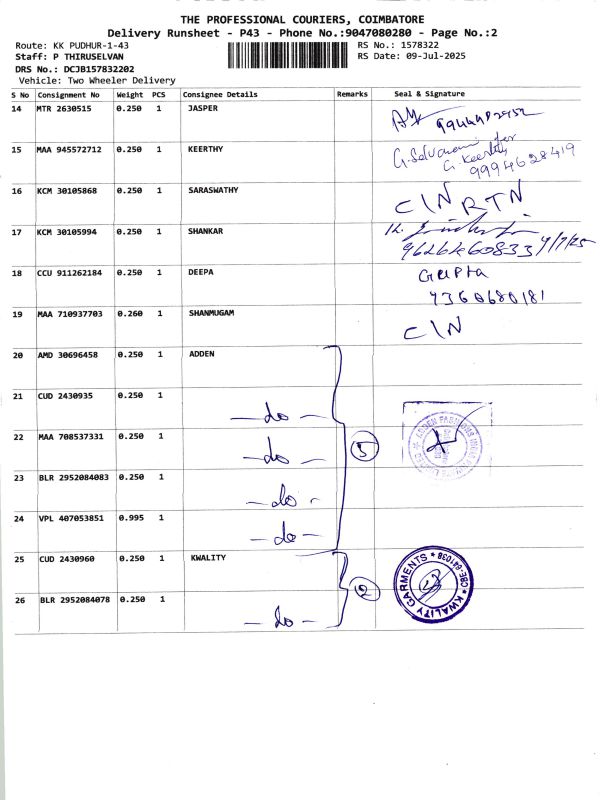 THE PROFESSIONAL COURIERS, COIMBATORE
Delivery Runsheet - P43 - Phone No.:9047080280 - Page No.:2
Route: KK PUDHUR-1-43
RS No.: 1578322
Staff: P THIRUSELVAN
RS Date: 09-Jul-2025
DRS No.: DCJB157832202
Vehicle: Two Wheeler Delivery
S No Consignment No Weight PCS Consignee Details Remarks Seal & Signature
14 MTR 2630515 0.250 1 JASPER
15 MAA 945572712 0.250 1 KEERTHY G.Selvarani for
G. Keerthy
9994628419
16 KCM 30105868 0.250 1 SARASWATHY CIN RTN
17 KCM 30105994 0.250 1 SHANKAR
9/7/25
18 CCU 911262184 0.250 1 DEEPA Gupta
9360680181
19 MAA 710937703 0.260 1 SHANMUGAM CIN
20 AMD 30696458 0.250 1 ADDEN
21 CUD 2430935 0.250 1
—do—
22 MAA 708537331 0.250 1 5
—do—
23 BLR 2952084083 0.250 1
—do-
24 VPL 407053851 0.995 1
—do—
25 CUD 2430960 0.250 1 KWALITY 2
KWALITY GARMENTS * CBE-641038 *
26 BLR 2952084078 0.250 1
—do—